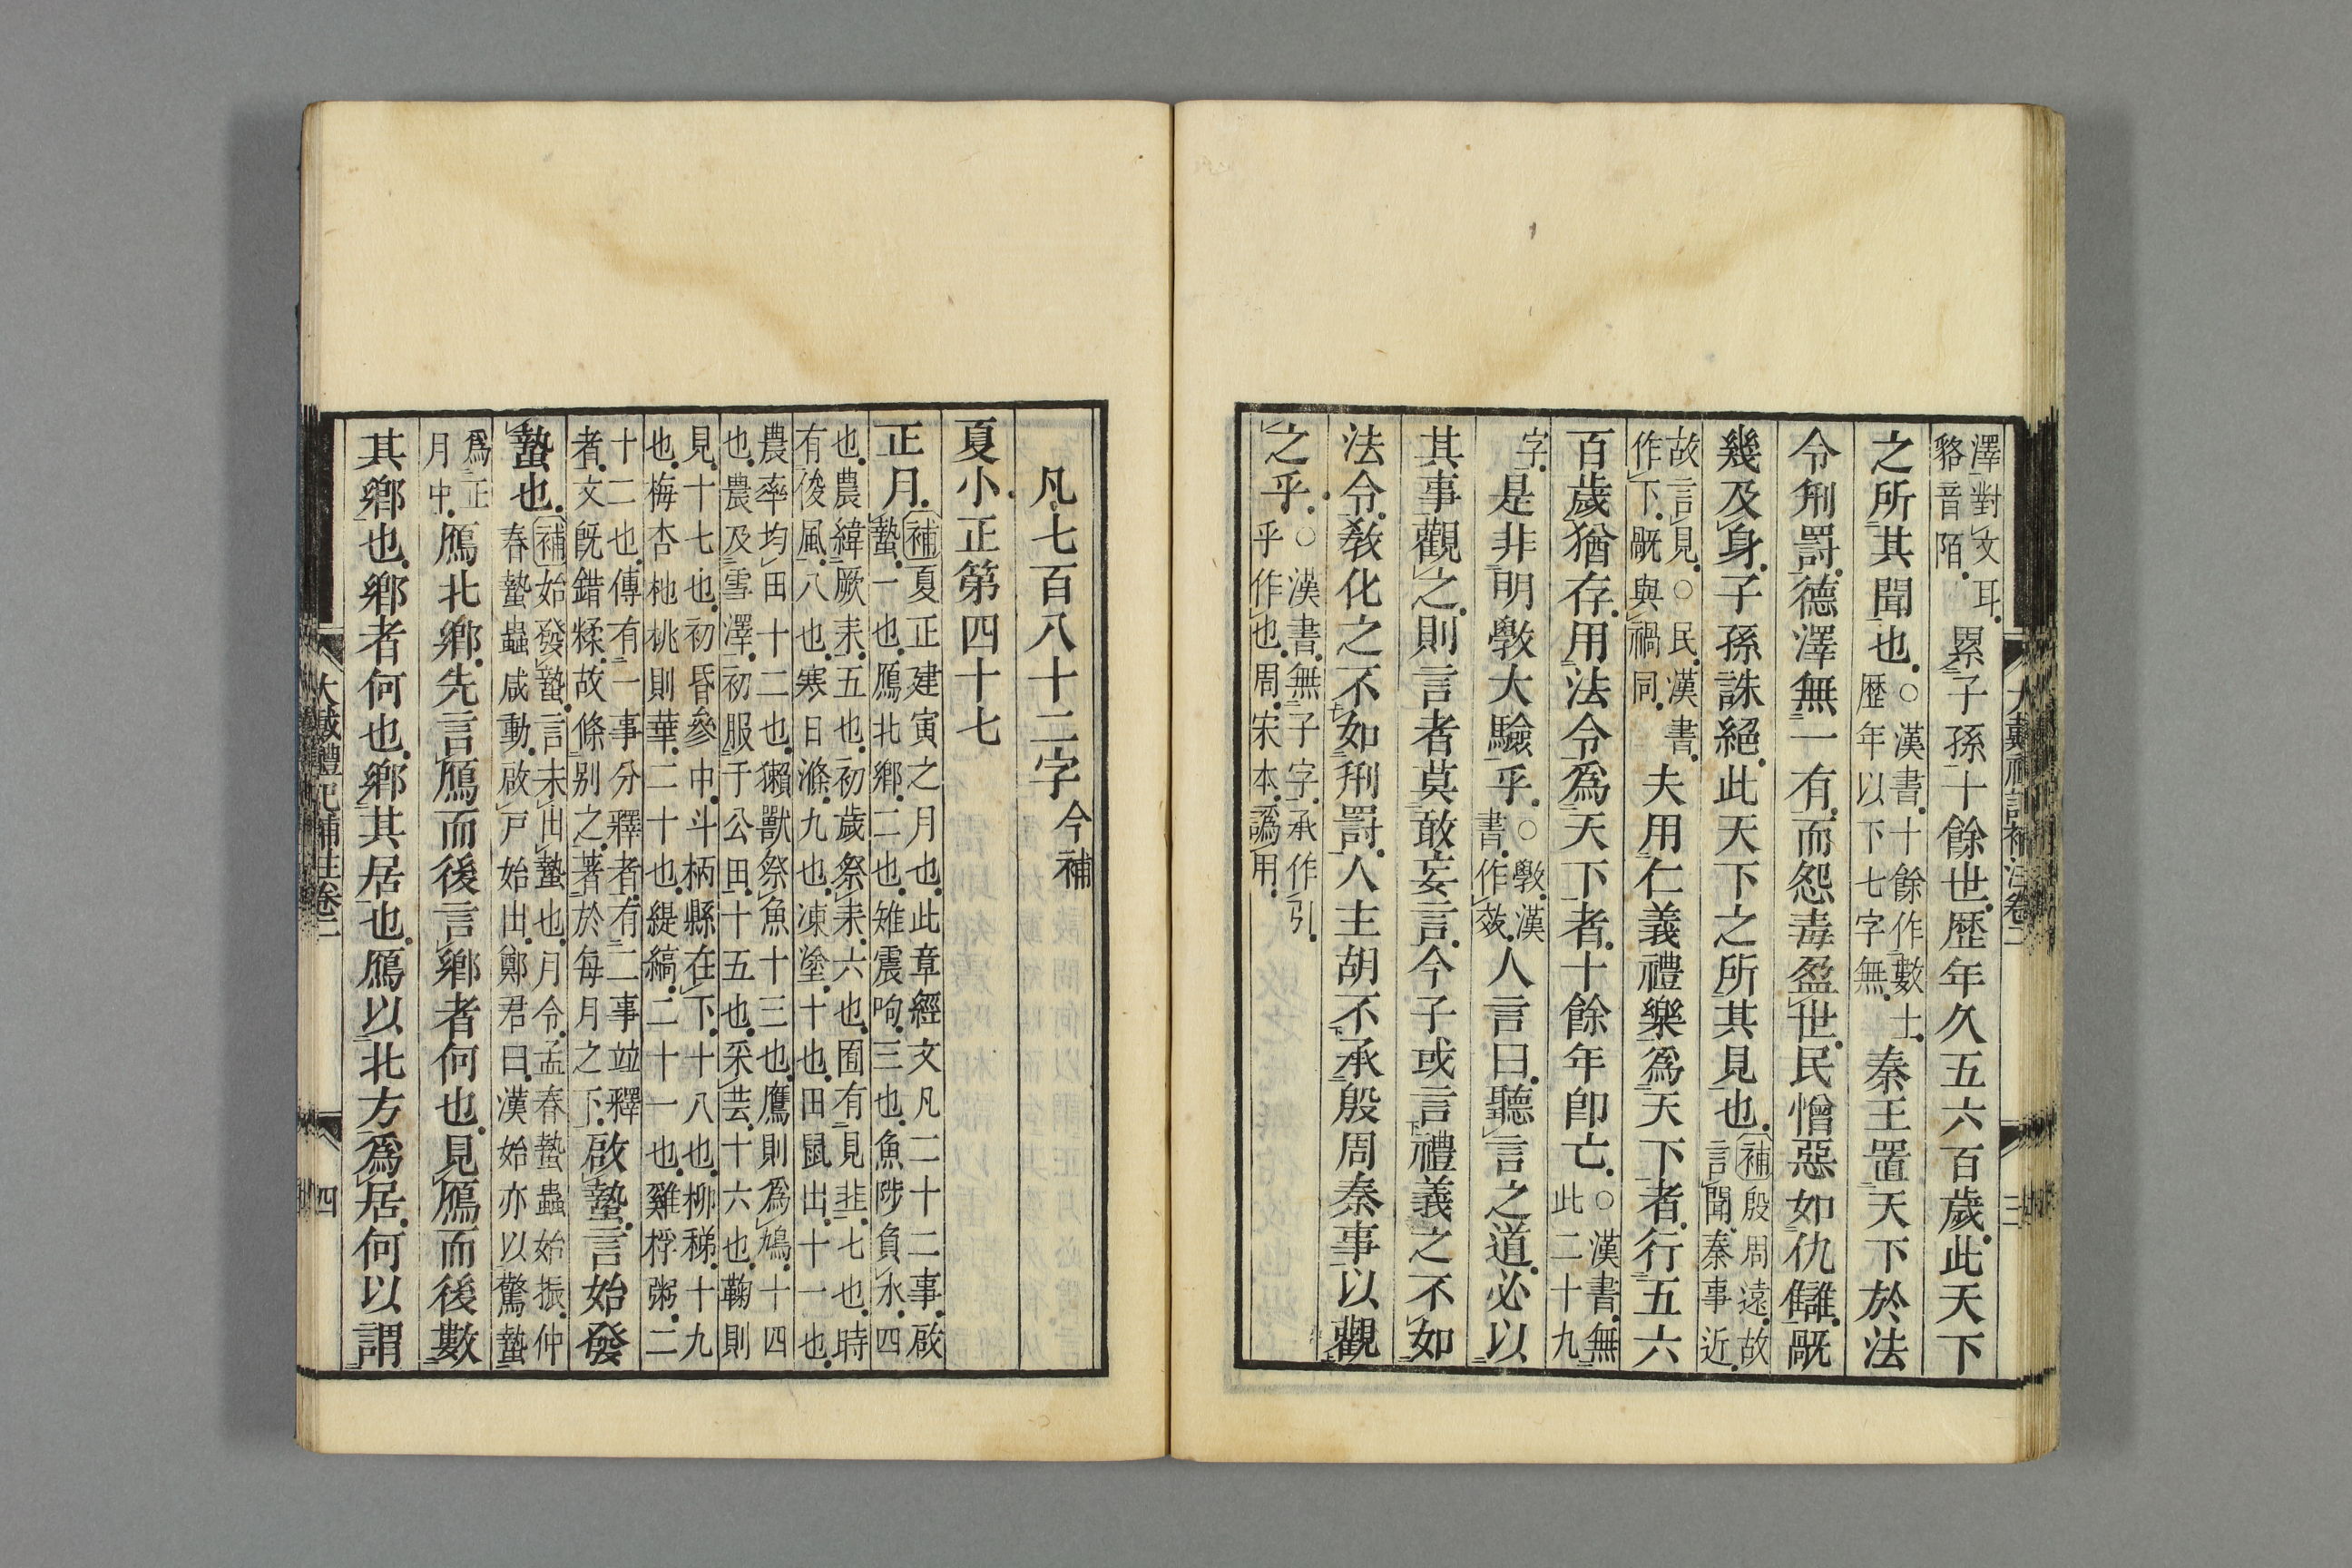 澤對文耳
貉音陌
累子孫十餘世歷年久五六百歲此天下
之所其聞也
○漢書十餘作數士
歷年以下七字無
秦王置天下於法
令刑罰德澤無一有而怨毒盈世民憎惡如仇讎旤
幾及身子孫誅絕此天下之所其見也
補殷周遠故
言聞秦事近
故言見○民漢書
作下旤與禍同
夫用仁義禮樂為天下者行五六
百歲猶存用法令為天下者十餘年即亡
○漢書無
此二十九
字
是非明斆大驗乎
○斆漢
書作效
人言曰聽言之道必以
其事觀之則言者莫敢妄言今子或言禮義之不如
法令教化之不如刑罰人主胡不承殷周秦事以觀
之乎
○漢書無子字承作引
乎作也周宋本譌用
大戴禮記補注卷二
三
凡七百八十二字
今補
夏小正第四十七
正月
補夏正建寅之月也此章經文凡二十二事啟
蟄一也鴈北鄉二也雉震呴三也魚陟負氷四
也農緯厥耒五也初歲祭耒六也囿有見韭七也時
有俊風八也寒日滌九也凍塗十也田鼠出十一也
農率均田十二也獺獸祭魚十三也鷹則為鳩十四
也農及雪澤初服于公田十五也采芸十六也鞠則
見十七也初昏參中斗柄縣在下十八也柳稊十九
也梅杏杝桃則華二十也緹縞二十一也雞桴粥二
十二也傳有一事分釋者有二事竝釋
者文旣錯糅故條别之著於每月之下
啟蟄言始發
蟄也
補始發蟄言未出蟄也月令孟春蟄蟲始振仲
春蟄蟲咸動啟戸始出鄭君曰漢始亦以驚蟄
為正
月中
鴈北鄉先言鴈而後言鄉者何也見鴈而後數
其鄉也鄉者何也鄉其居也鴈以北方為居何以謂
大戴禮記補注卷二
四